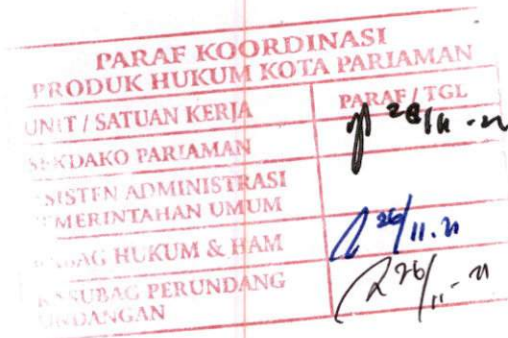 PARAF KOORDINASI
PRODUK HUKUM KOTA PARIAMAN
UNIT / SATUAN KERJA PARAF / TGL
SEKDAKO PARIAMAN
ASISTEN ADMINISTRASI
PEMERINTAHAN UMUM
HUKUM & HAM 26/11.21
KASUBAG PERUNDANG 26/11-21
UNDANGAN